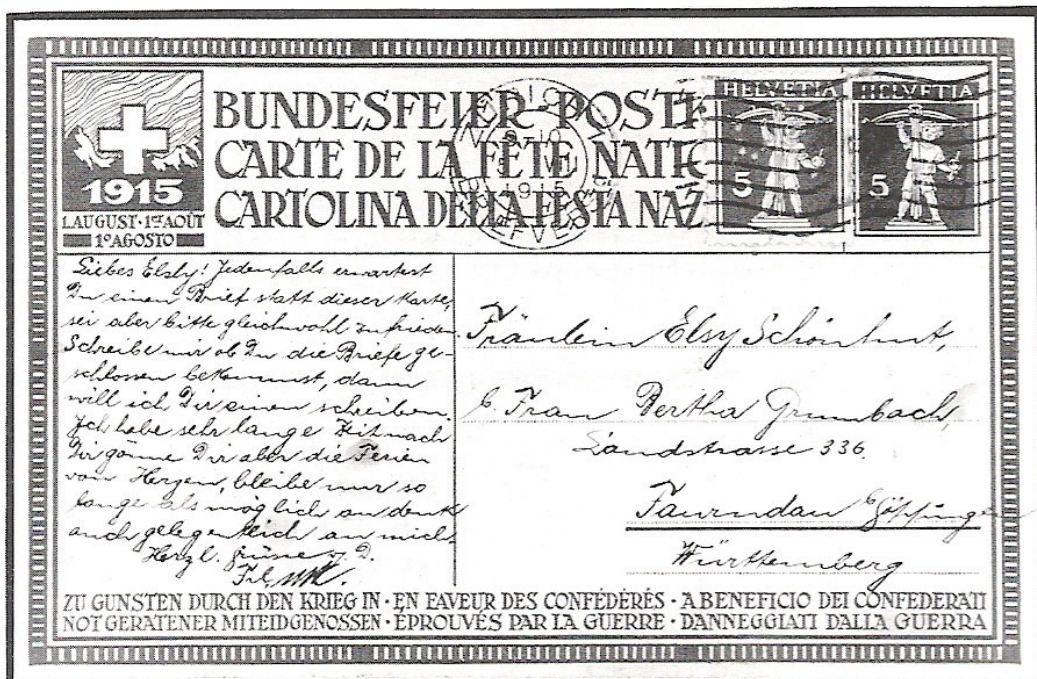 BUNDESFEIER-POSTK
CARTE DE LA FÊTE NATIO
CARTOLINA DELLA FESTA NAZ
1915
1.AUGUST·1ER AOÛT
1º AGOSTO
HELVETIA
5
HELVETIA
5
1915
BRIEFVERS
Liebes Elsly! Jedenfalls erwartest
Du einen Brief statt dieser Karte,
sei aber bitte gleichwohl zufrieden.
Schreibe mir ob Du die Briefe ge-
schlossen bekommst, dann
will ich Dir einen schreiben.
Ich habe sehr lange Zeit nach
Dir gönne Dir aber die Ferien
von Herzen, bleibe nur so
lange als möglich an denk
auch gelegentlich an mich.
Herzl. D.
Fräulein Elsy Schönhut,
b. Frau Bertha Grumbach,
Landstrasse 336.
Faurndau b/Göppingen
Württemberg
ZU GUNSTEN DURCH DEN KRIEG IN · EN FAVEUR DES CONFÉDÉRÉS · A BENEFICIO DEI CONFEDERATI
NOT GERATENER MITEIDGENOSSEN · ÉPROUVÉS PAR LA GUERRE · DANNEGGIATI DALLA GUERRA